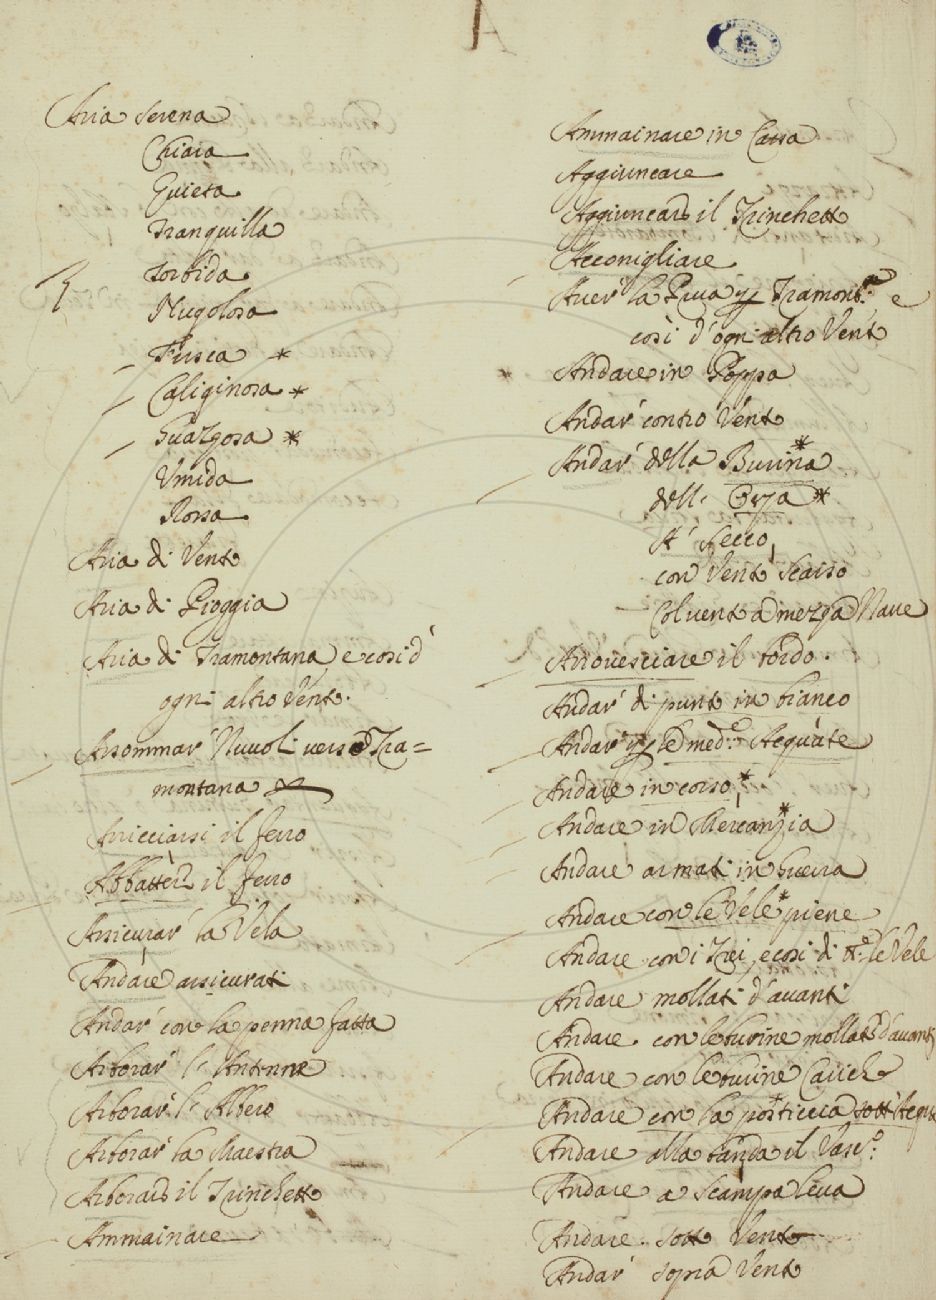 A
Aria Serena
Chiara
Quieta
Tranquilla
Torbida
Nugolosa
Fusca *
Caliginosa *
Guazosa *
Umida
Rossa
Aria di Vento
Aria di Pioggia
Aria di Tramontana e cosi d'
ogni altro Vento.
Assommar Nuvoli verso Tra=
montana
Arricciarsi il ferro
Abbatter il ferro
Assicurar la Vela
Andare assicurati
Andar con la penna fatta
Arborar l'Antenne
Arborar l'Albero
Arborar la Maestra
Arborare il Trinchetto
Ammainare
Ammainare in Cassa
Aggiuncare
Aggiuncare il Trinchetto
Acconigliare
Aver la Prua Tramont.a e
cosi d'ogni altro Vento
Andare in Poppa
Andar contro Vento
Andar della Burina *
dell' Orza *
A Secco
con Vento Scarso
Col vento a mezza Nave
Arrovesciare il bordo.
Andar di punto in bianco
Andar le med.e Acquate
Andare in corso *
Andare in Mercanzia *
Andare armati in Guerra
Andare con le Vele * piene
Andare con i Trei, e cosi di tt.e le Vele
Andare mollati d'avanti
Andare con le burine mollate d'avanti
Andare con le burine Cariche
Andare con la posticcia sott'Acqua
Andare alla banda il Vasc.o
Andare a Scampa leva
Andare sotto Vento
Andar sopra Vento